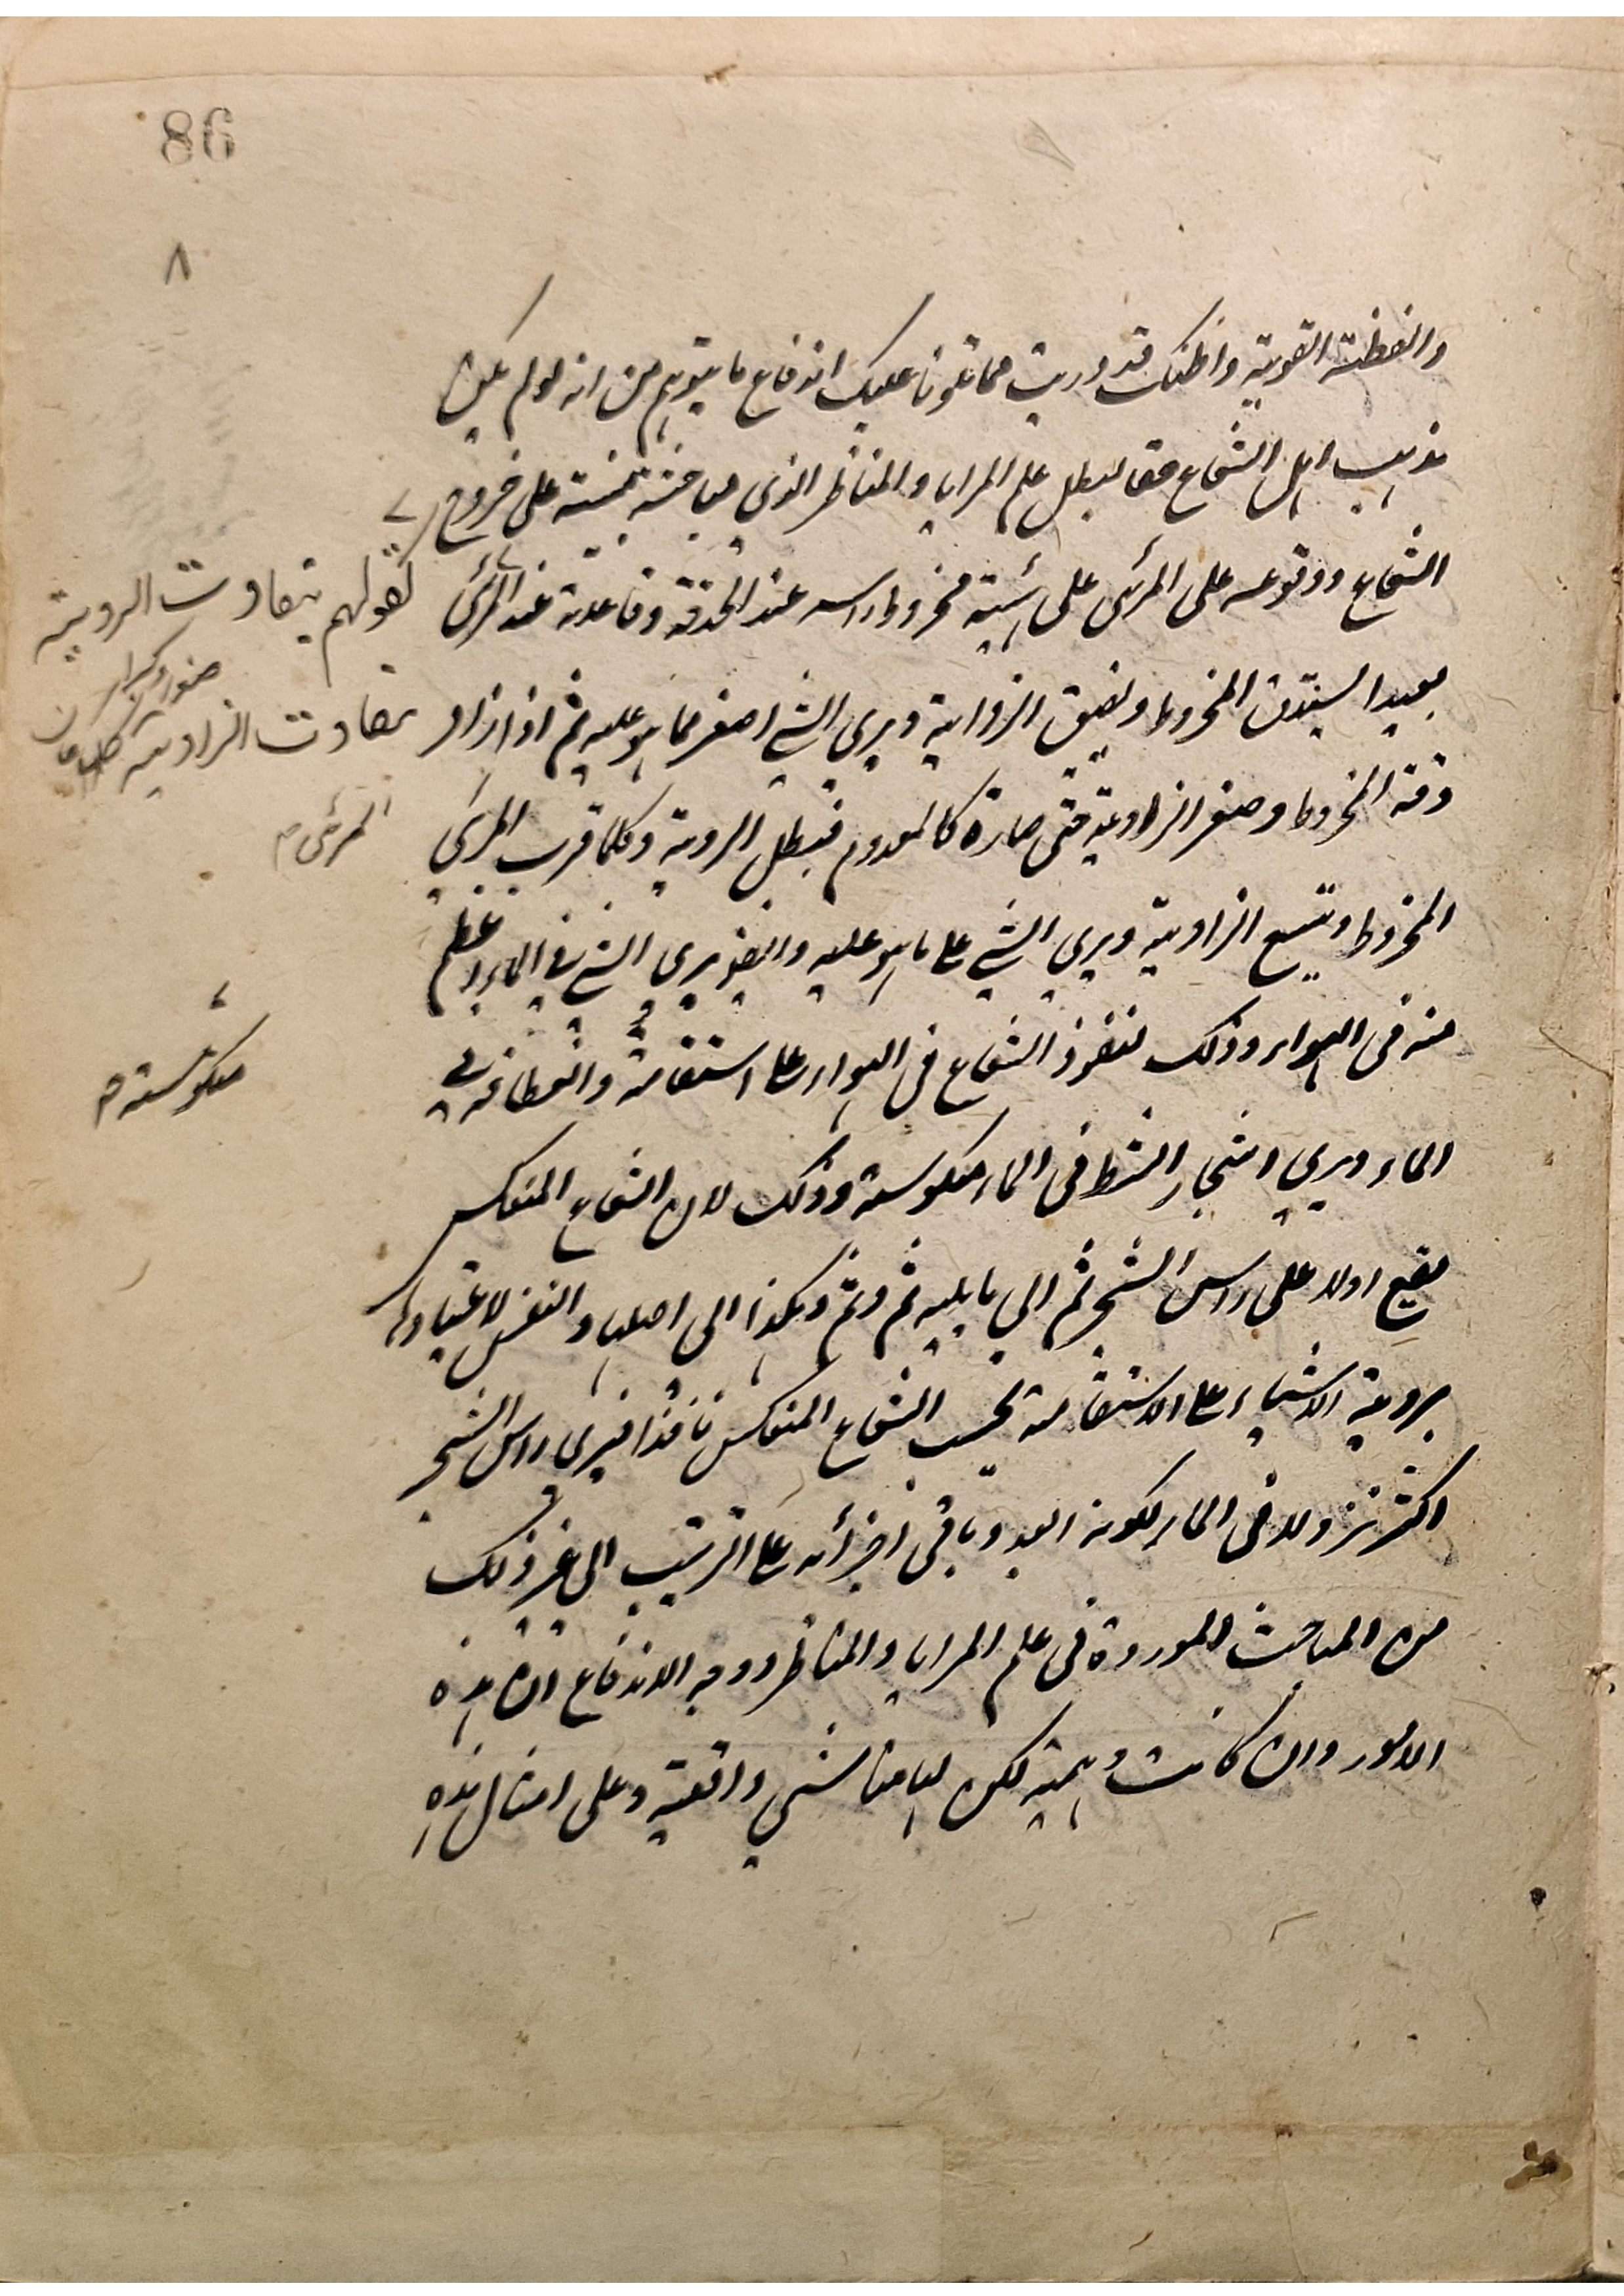 86
٨
والفطنة القوية واظنك قد دريت مما تلونا عليك اندفاع ما يتوهم من انه لو لم يكن
مذهب اهل الشعاع حقا لبطل علم المرايا والمناظر الذي مباحثه مبنية على خروج
الشعاع ووقوعه على المرئى على هيئة مخروط راسه عند الحدقة وقاعدته عند المرئى
كقولهم يتفاوت الروية
صغرا وكبرا
بتفاوت الزاوية كلما كان
المرئى م
بعيدا يستدق المخروط ويضيق الزواية ويرى الشي اصغر مما هو عليه ثم اذا ازداد
دقة المخروط وصغر الزاوية حتى صارة كالمعدوم فيبطل الروية وكلما قرب المرئي
المخروط ويتسع الزاوية ويرى الشي على ما هو عليه وايضا يرى الشي في الماء اعظم
منه فى الهواء وذلك لنفوذ الشعاع في الهواء على استقامته وانعطافه في
الماء ويرى اشجار الشط فى الماء منكوسة وذلك لان الشعاع المنعكس
منكوسته م
يقع اولا على راس الشجر ثم الى ما يليه ثم وثم وهكذا الى اصلها والنفس لاعتيادها
بروية الاشياء على الاستقامة تحسب الشعاع المنعكس نافذا فيرى راس الشجر
اكثر نزولا فى الماء لكونه ابعد وباقى اجزائه على الترتيب الى غير ذلك
من المباحث الموردة فى علم المرايا والمناظر ووجه الاندفاع ان هذه
الامور وان كانت وهمية لكن لها مناشي واقعية وعلى امثال هذه